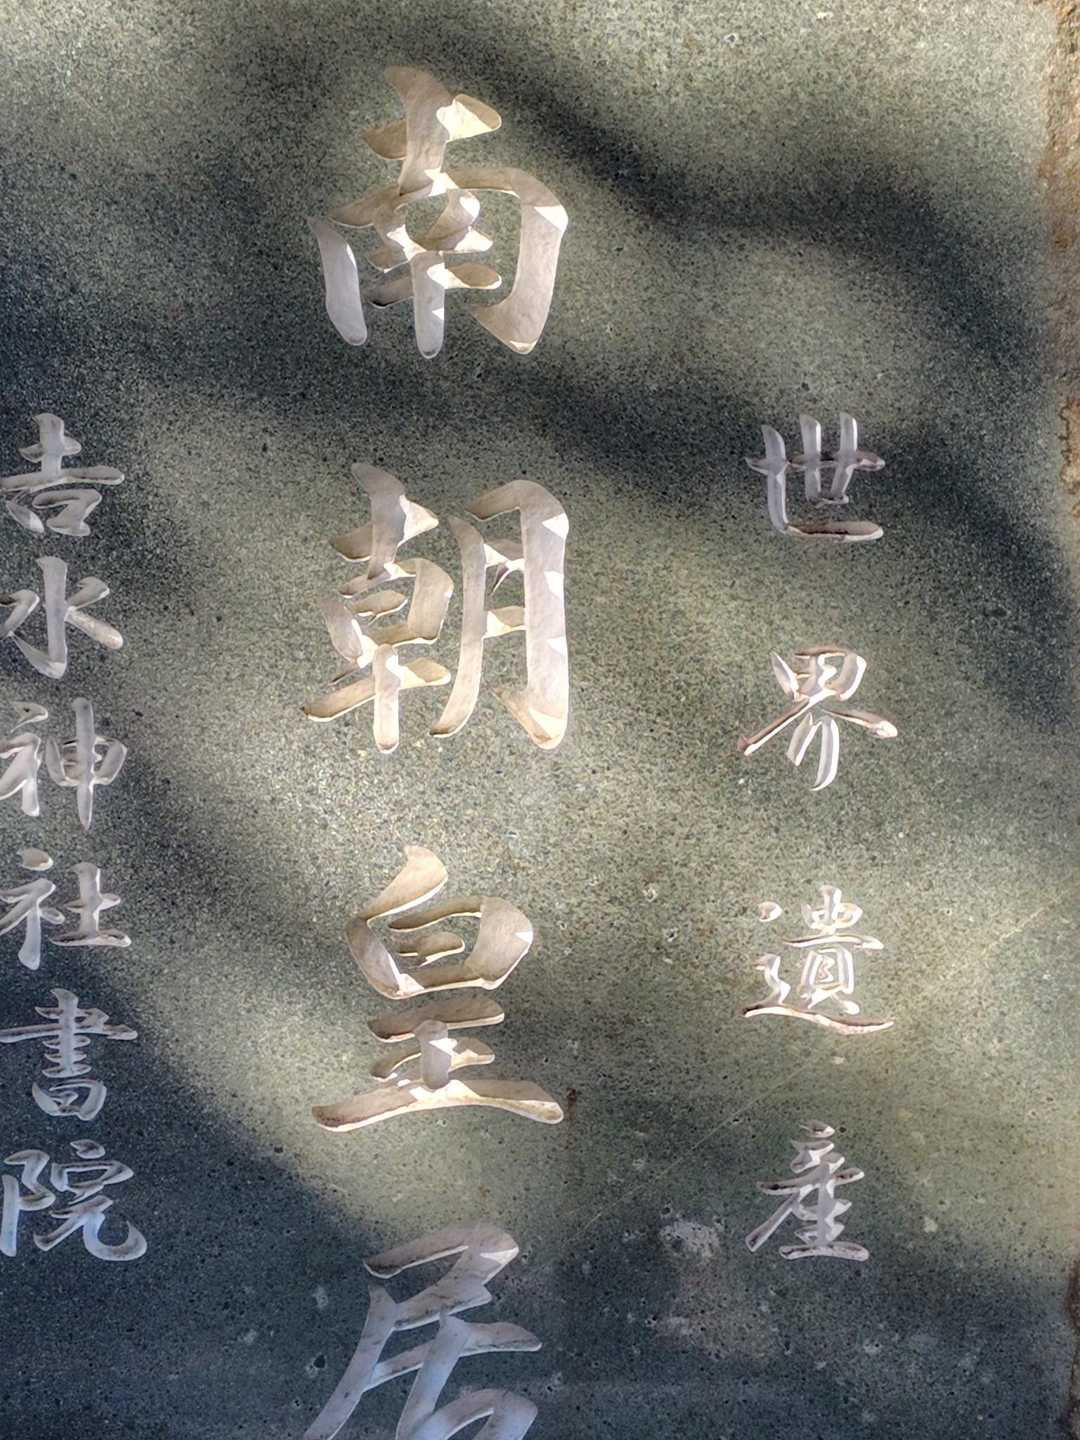 世界遺産
南朝皇居
吉水神社書院